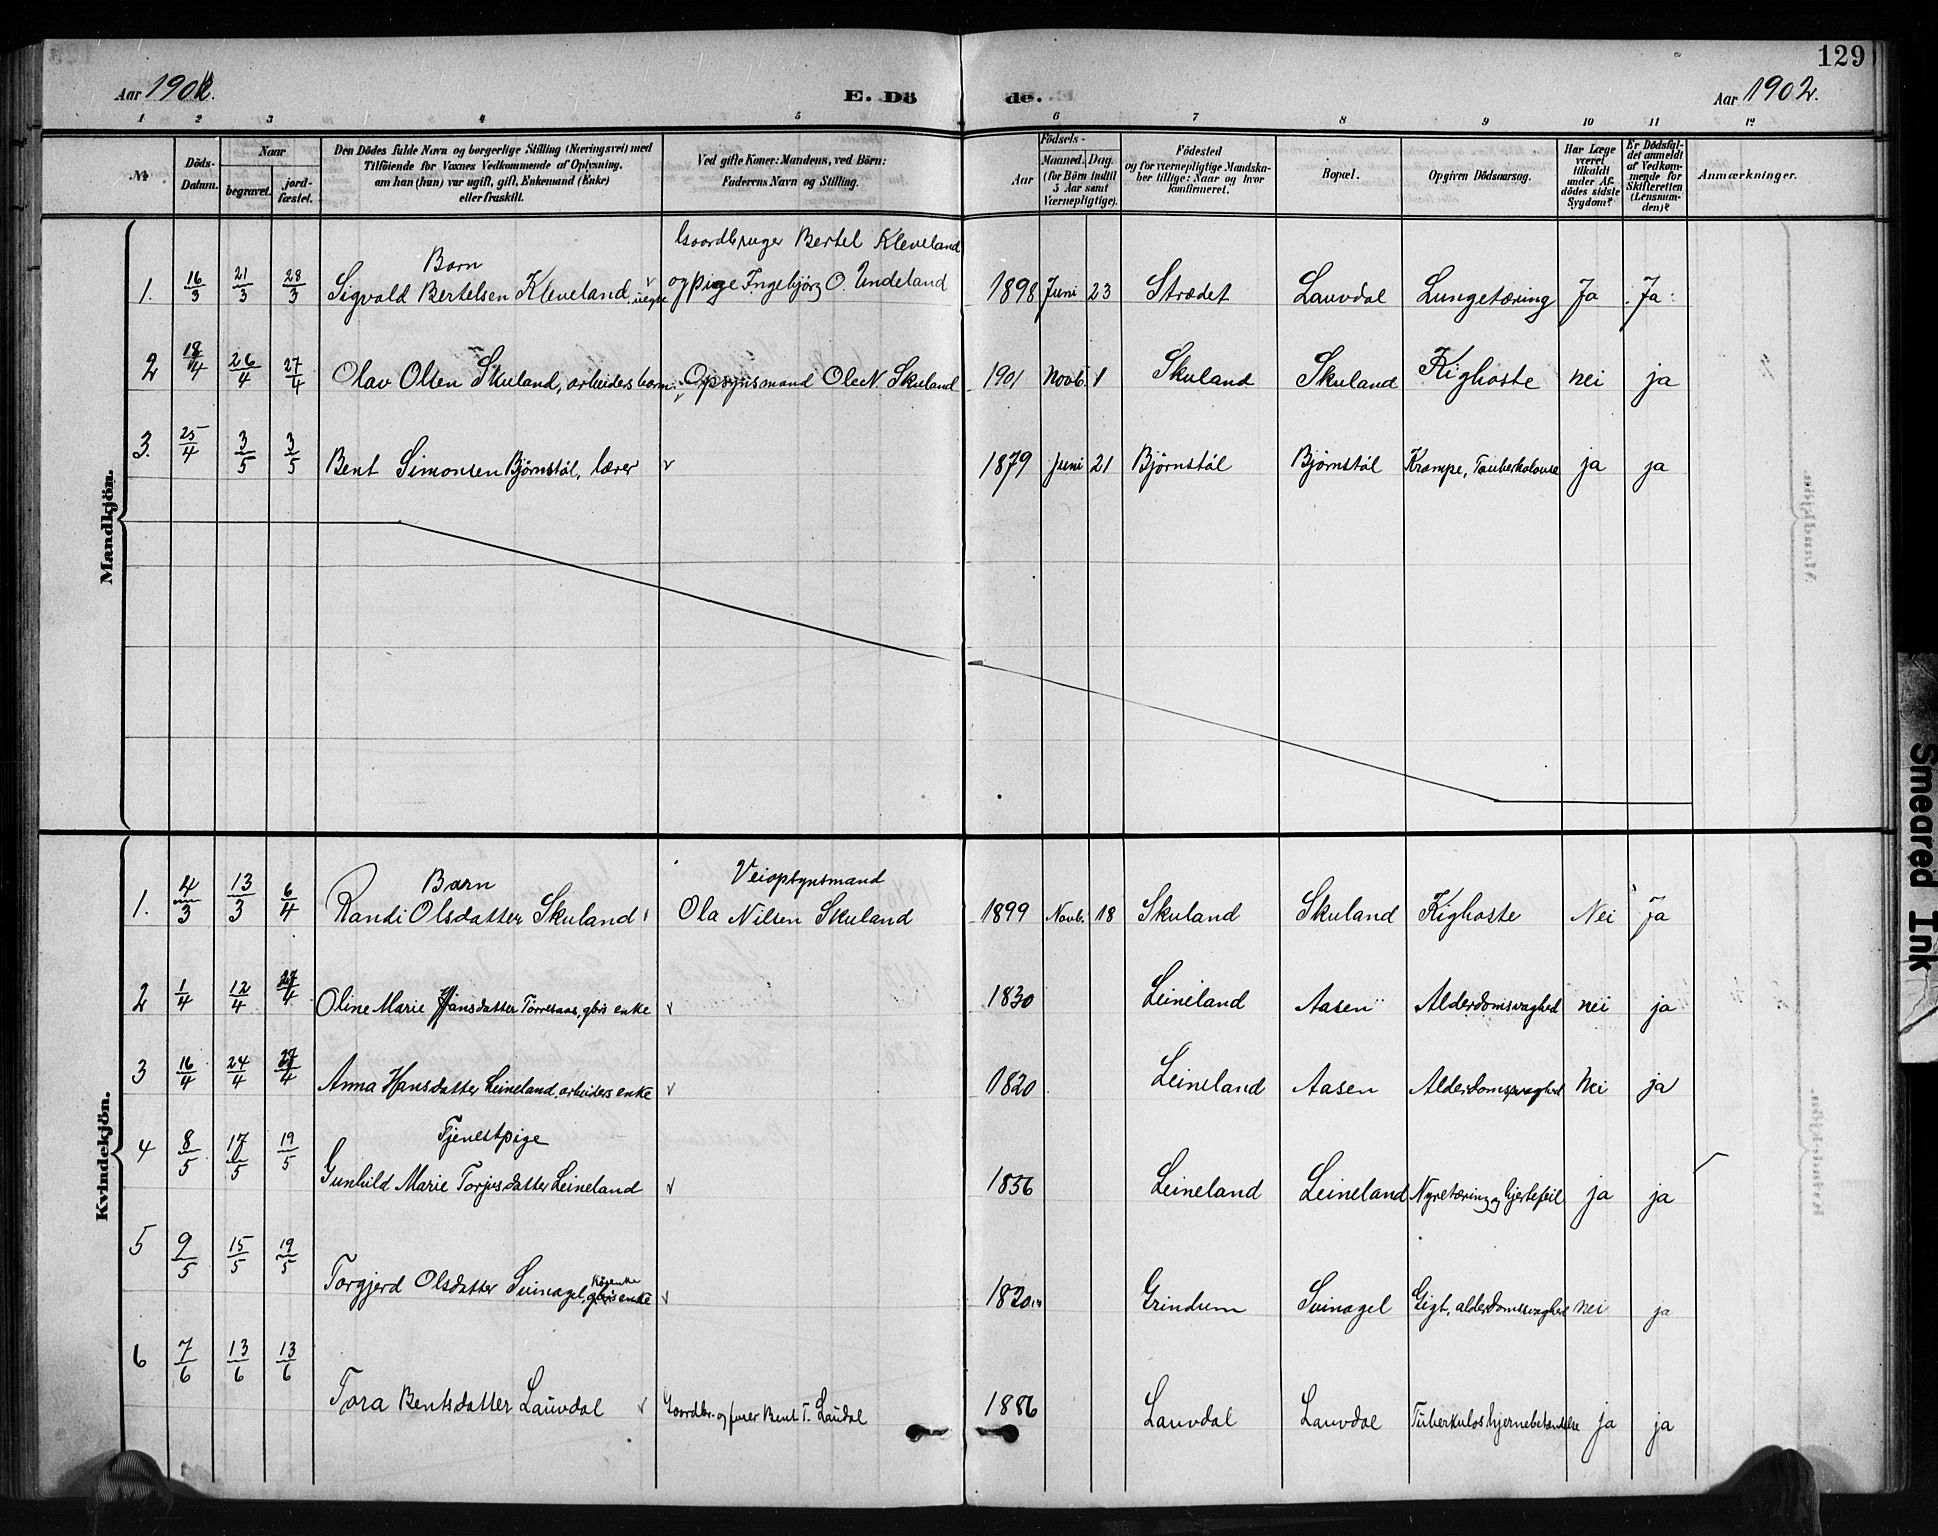 129
Aar 1902.
E. Döde.
Aar 1902.
1 2 3 4 5 6 7 8 9 10 11 12
No
Döds-Datum.
Naar
begravet.
jord-fæstet.
Den Dödes fulde Navn og borgerlige Stilling (Næringsvei) med
Tilföiende for Voxnes Vedkommende af Oplysning,
om han (hun) var ugift, gift, Enkemand (Enke)
eller fraskilt.
Ved gifte Koner: Mandens, ved Börn:
Faderens Navn og Stilling.
Födsels-
Aar
Maaned. Dag.
(for Börn indtil
5 Aar samt
Værnepligtige).
Födested
og for værnepligtige Mandska-
ber tillige: Naar og hvor
konfirmeret.
Bopæl.
Opgiven Dödsaarsag.
Har Læge
været
tilkaldt
under Af-
dödes sidste
Sygdom?
Er Dödsfal-
det anmeldt
af Vedkom-
mende for
Skifteretten
(Lensman-
den)?
Anmærkninger.
Mandkjön.
Gaardbruger Bertel Kleveland
Barn
1. 16/3 21/3 28/3 Sigvald Bertelsen Kleveland, uegte og pige Ingebjörg O. Undeland 1898 Juni 23 Strædet Lauvdal Lungetæring Ja Ja
2 18/4 26/4 27/4 Olav Olsen Skuland, arbeidsbarn Opsynsmand Ole N. Skuland 1901 Novb. 1 Skuland Skuland Kighoste nei ja
3. 25/4 3/5 3/5 Bent Simonsen Björnstöl, lærer 1879 Juni 21 Björnstöl Björnstöl Krampe, Tuberkolouse ja ja
Kvindekjön.
Barn Veiopsynsmand
1. 4/3 13/3 6/4 Randi Olsdatter Skuland Ola Nilsen Skuland 1899 Novb. 18 Skuland Skuland Kighoste Nei Ja
2 1/4 12/4 27/4 Oline Marie Hansdatter Torresaas, gbrs enke 1830 Leineland Aasen Alderdomsvaghed nei ja
3 16/4 24/4 27/4 Anna Hansdatter Leineland, arbeiders enke 1820 Leineland Aasen Alderdomsvaghed Nei ja
Tjenestpige
4 8/5 17/5 19/5 Gunhild Marie Torjusdatter Leineland 1856 Leineland Leineland Nyretæring og hjertefeil ja ja
5 9/5 15/5 19/5 Torgjerd Olsdatter Svinagel, gbrs enke 1820 Grindum Svinagel Gigt, alderdomsvaghed nei ja
6 7/6 13/6 13/6 Tora Bentsdatter Lauvdal Gaardbr. og furer Bent T. Laudal 1886 Lauvdal Lauvdal Tuberkulos hjernebetendelse ja ja
Smeared Ink